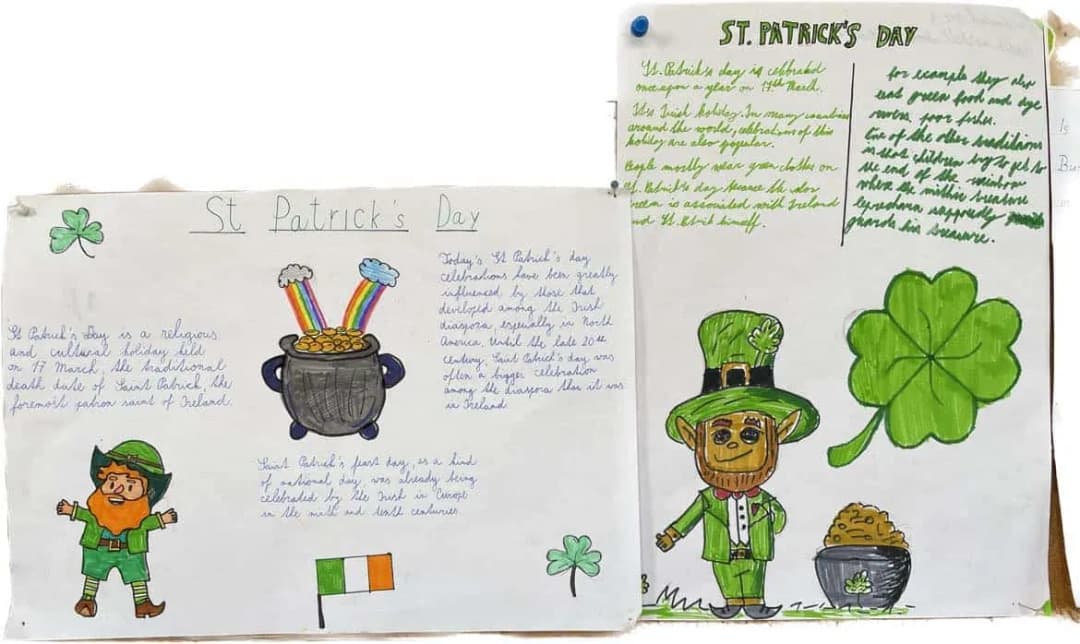 St Patrick's Day
St Patrick's Day is a religious
and cultural holiday held
on 17 March, the traditional
death date of Saint Patrick, the
foremost patron saint of Ireland.
Today's St Patrick's day
celebrations have been greatly
influenced by those that
developed among the Irish
diaspora, especially in North
America. Until the late 20th
century, Saint Patrick's day was
often a bigger celebration
among the diaspora than it was
in Ireland
Saint Patrick's feast day, as a kind
of national day, was already being
celebrated by the Irish in Europe
in the ninth and tenth centuries.
ST. PATRICK'S DAY
St. Patrick's day is celebrated
once upon a year on 17th March.
It's Irish holiday. In many countries
around the world, celebrations of this
holiday are also popular.
People mostly wear green clothes on
St. Patrick's day because the
green is associated with Ireland
and St. Patrick himself.
for example they also
eat green food and dye
rivers, poor fishes.
One of the other traditions
is that children try to get to
the end of the rainbow
where the
leprechaun supposedly
guards his treasure.